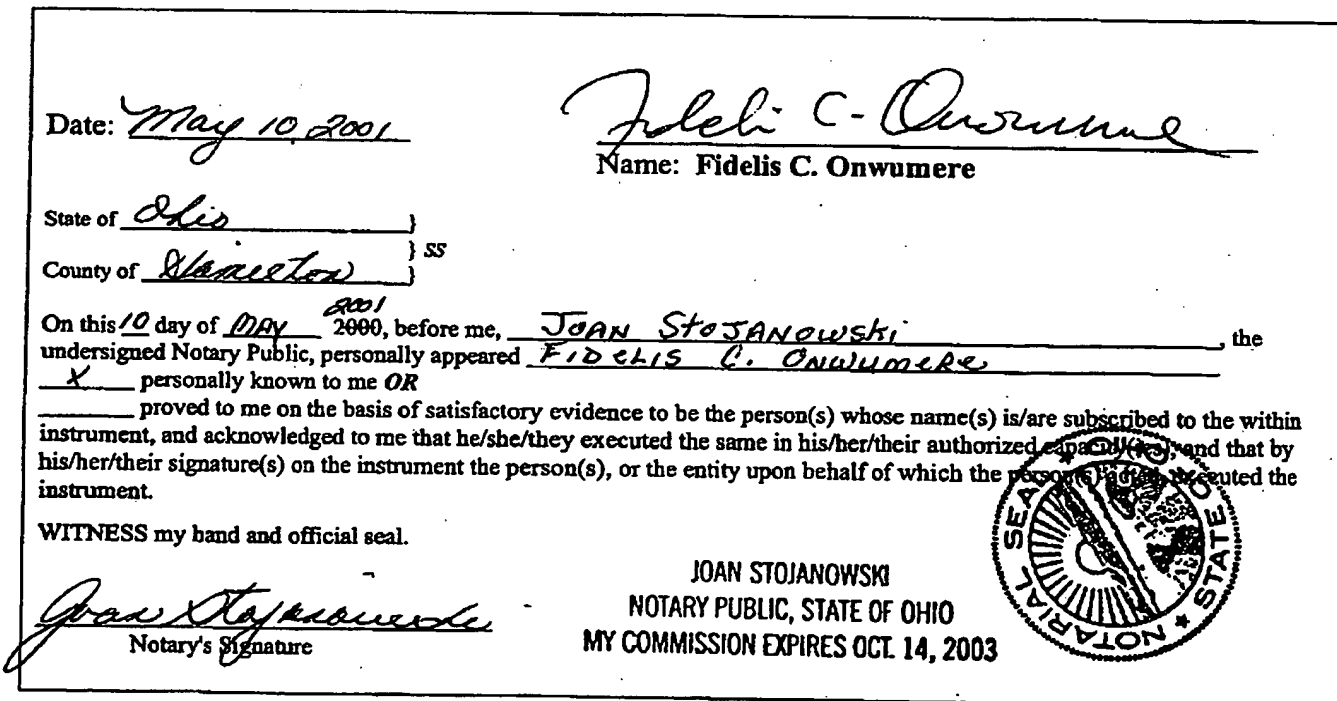 Date: May 10, 2001
Fidelis C. Onwumere
Name: Fidelis C. Onwumere
State of Ohio }
} SS
County of Hamilton }
2001
On this 10 day of MAY 2000, before me, JOAN STOJANOWSKI, the
undersigned Notary Public, personally appeared FIDELIS C. ONWUMERE
X personally known to me OR
proved to me on the basis of satisfactory evidence to be the person(s) whose name(s) is/are subscribed to the within
instrument, and acknowledged to me that he/she/they executed the same in his/her/their authorized capacity(ies), and that by
his/her/their signature(s) on the instrument the person(s), or the entity upon behalf of which the person(s) acted, executed the
instrument.
WITNESS my hand and official seal.
Joan Stojanowski
Notary's Signature
JOAN STOJANOWSKI
NOTARY PUBLIC, STATE OF OHIO
MY COMMISSION EXPIRES OCT. 14, 2003
NOTARIAL SEAL * STATE OF OHIO *